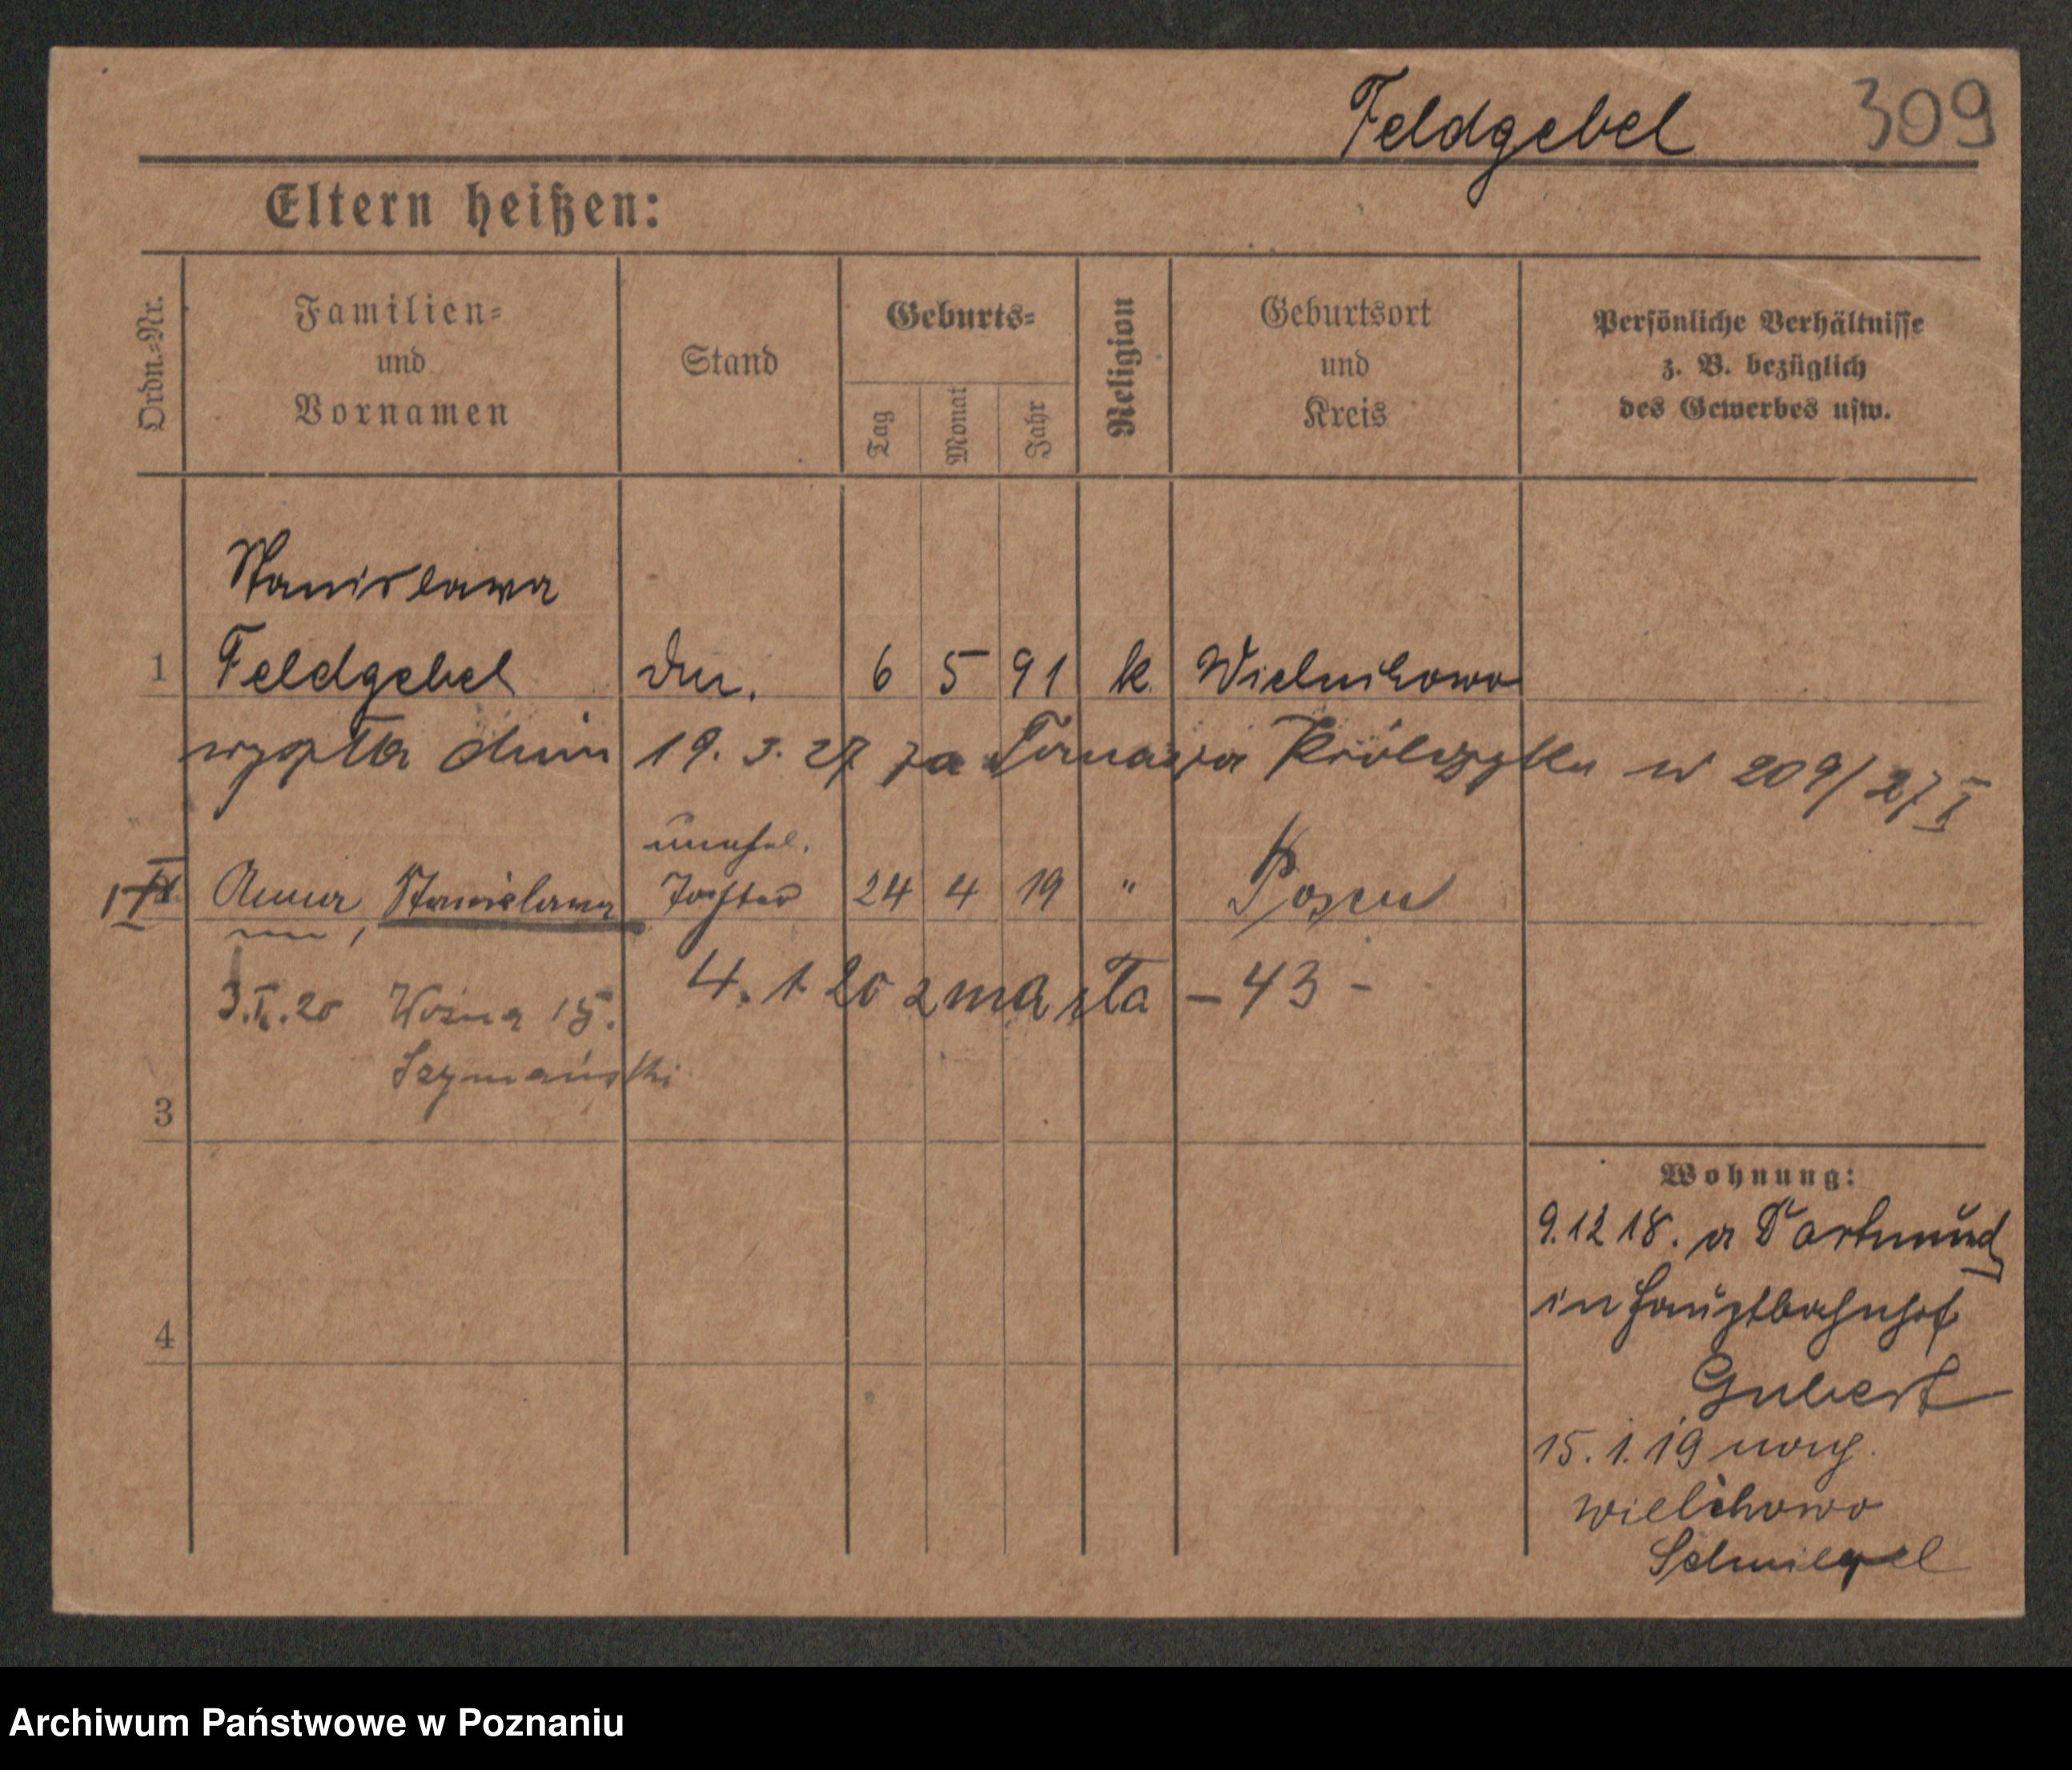 Feldgebel 309
Eltern heißen:
Ordn.=Nr.
Familien=
und
Vornamen
Stand
Geburts=
Tag
Monat
Jahr
Religion
Geburtsort
und
Kreis
Persönliche Verhältnisse
z. B. bezüglich
des Gewerbes usw.
Stanislawa
1 Feldgebel 6 5 91 k. Wielichowo
wyszła dnia 19. 3. 27 za Tomasza w 209/27 I
unehel.
Anna, Stanislawa Tochter 24 4 19 " Posen
4. 1. 20 zmarła - 43 -
3.I.20 Woźna 15.
Szymański
3
4
Wohnung:
9.12 18. a Dortmund
in Hauptbahnhof
15. 1. 19 nach
Wielichowo
Schmiegel
Archiwum Państwowe w Poznaniu